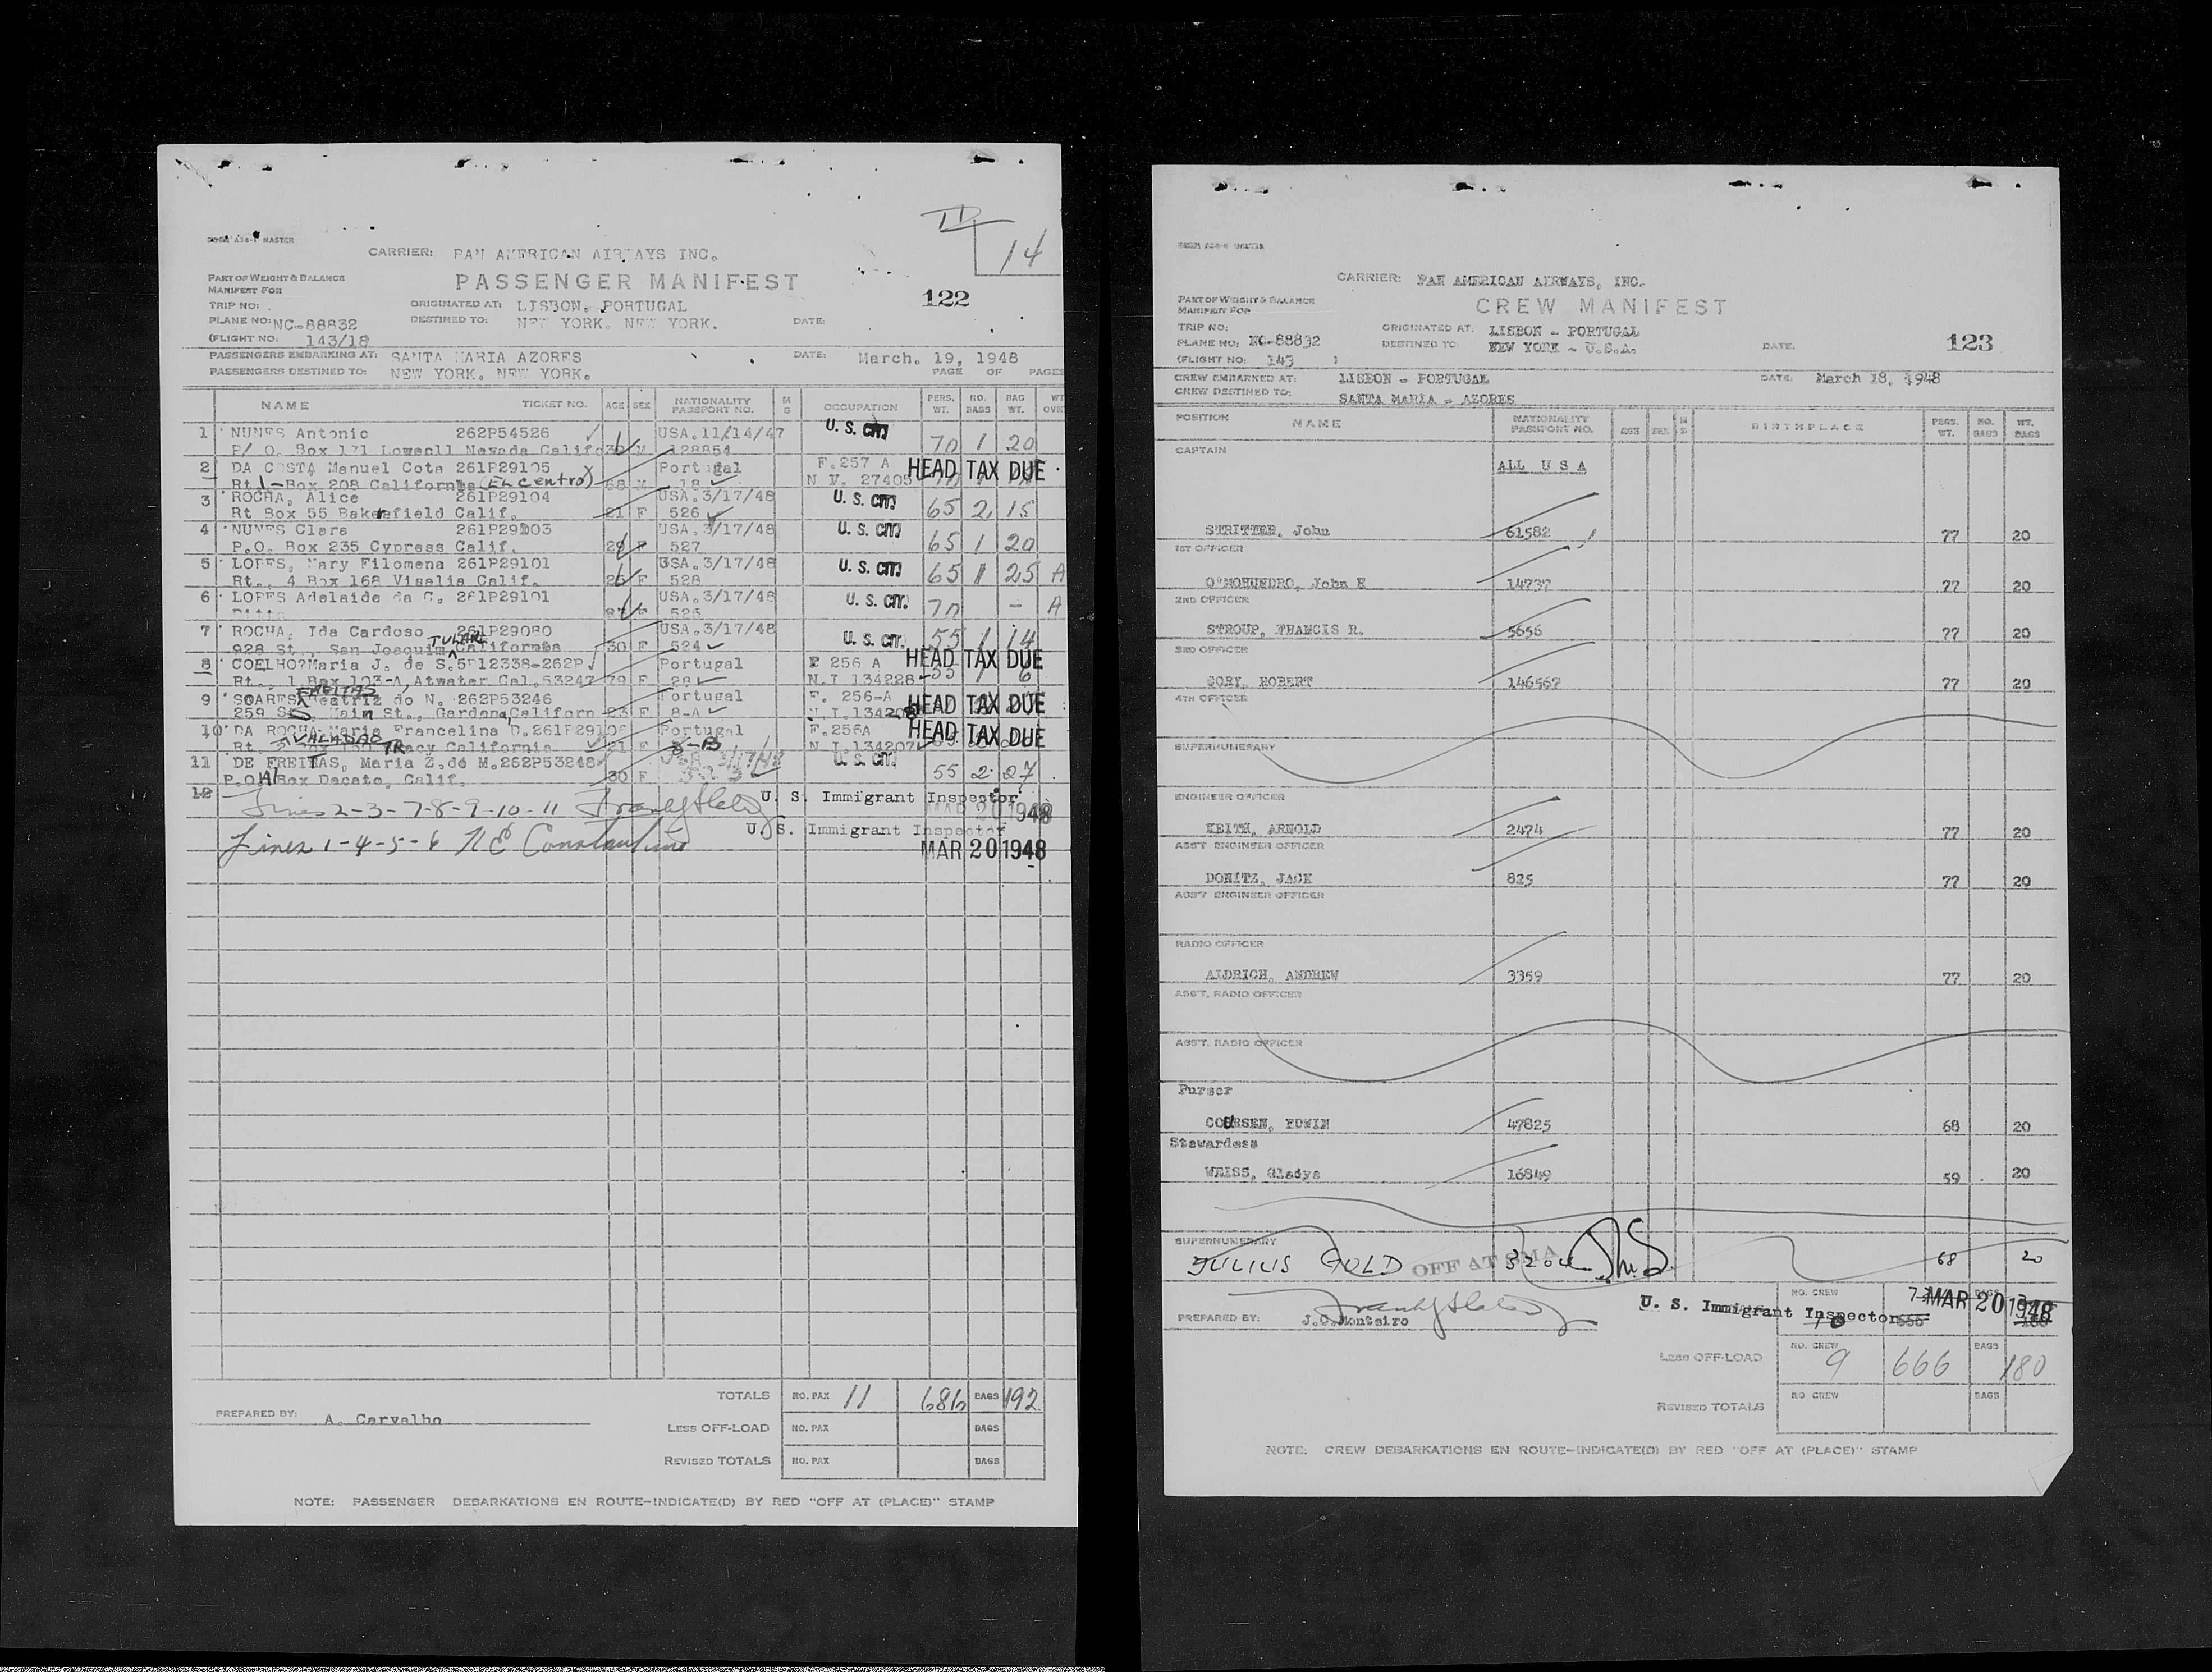 14
CARRIER: PAN AMERICAN AIRWAYS INC.
PART OF WEIGHT & BALANCE
MANIFEST FOR
PASSENGER MANIFEST
122
TRIP NO:
ORIGINATED AT: LISBON, PORTUGAL
PLANE NO: NC-88832
DESTINED TO: NEW YORK. NEW YORK.
DATE:
(FLIGHT NO. 143/18
PASSENGERS EMBARKING AT: SANTA MARIA AZORES
DATE: March. 19, 1948
PASSENGERS DESTINED TO: NEW YORK. NEW YORK.
PAGE OF PAGES
NAME TICKET NO. AGE SEX NATIONALITY PASSPORT NO. M S OCCUPATION PERS. WT. NO. BAGS BAG WT.
1 NUNES Antonio 262P54526 USA.11/14/47 U. S. CIT.
P/ O. Box 171 Lowecll Nevada Califo M 128854 70 1 20
2 DA COSTA Manuel Cota 261P29105 Portugal F.257 A HEAD TAX DUE
Rt 1- Box 208 California (EL Centro) 68 M 18 N V. 27405
3 ROCHA, Alice 261P29104 USA.3/17/48 U. S. CIT.
Rt Box 55 Bakersfield Calif. 21 F 526 65 2 15
4 NUNES Clara 261P29103 USA.3/17/48 U. S. CIT.
P.O. Box 235 Cypress Calif. 527 65 1 20
5 LOPES, Mary Filomena 261P29101 USA.3/17/48 U. S. CIT.
Rt., 4 Box 168 Visalia Calif. F 528 65 1 25 A
6 LOPES Adelaide da C. 261P29101 USA.3/17/48 U. S. CIT.
Ditto 70 - A
7 ROCHA, Ida Cardoso 261P29080 USA.3/17/48
928 St., San Joaquim TULARE California 30 F 524 U. S. CIT. 55 1 14
8 COELHO?Maria J. de S. Portugal F 256 A HEAD TAX DUE
Rt., 1 Box 103-A, Atwater Cal. 79 F 29 N.I 134228 55 1 6
9 SOARES FREITAS Beatriz do N. 262P53246 Portugal F. 256-A HEAD TAX DUE
259 So. Main St., Gardena, Californ 23 F 8-A
10 DA ROCHA Maria Francelina D. Portugal F.256A HEAD TAX DUE
VALADAO
Rt. TRacy California F N.I.134207
11 DE FREITAS, Maria Z.de M.262P53248 U. S. CIT.
P.O. Box Decoto, Calif. 30 F 55 2 27
12 Lines 2-3-7-8-9-10-11 U. S. Immigrant Inspector
MAR 20 1948
Lines 1-4-5-6 U. S. Immigrant Inspector
MAR 20 1948
TOTALS NO. PAX 11 686 BAGS 192
PREPARED BY: A. Carvalho
LESS OFF-LOAD NO. PAX BAGS
REVISED TOTALS NO. PAX BAGS
NOTE: PASSENGER DEBARKATIONS EN ROUTE-INDICATE(D) BY RED "OFF AT (PLACE)" STAMP
CARRIER: PAN AMERICAN AIRWAYS, INC.
PART OF WEIGHT & BALANCE
MANIFEST FOR
CREW MANIFEST
TRIP NO:
ORIGINATED AT: LISBON - PORTUGAL
PLANE NO: NC-88832
DESTINED TO: NEW YORK - U.S.A.
DATE:
123
(FLIGHT NO: 143 )
CREW EMBARKED AT: LISBON - PORTUGAL
DATE: March 18, 1948
CREW DESTINED TO: SANTA MARIA - AZORES
POSITION NAME NATIONALITY PASSPORT NO. AGE SEX M S BIRTHPLACE PERS. WT. NO. BAGS WT. BAGS
CAPTAIN
ALL U S A
STRITTER, John 61582 77 20
1ST OFFICER
O'MOHUNDRO, John E 14737 77 20
2ND OFFICER
STROUP, FRANCIS R. 5656 77 20
3RD OFFICER
GORY, ROBERT 146567 77 20
4TH OFFICER
SUPERNUMERARY
ENGINEER OFFICER
KEITH, ARNOLD 2474 77 20
ASST ENGINEER OFFICER
DONITZ, JACK 825 77 20
ASS'T ENGINEER OFFICER
RADIO OFFICER
ALDRICH, ANDREW 3359 77 20
ASS'T. RADIO OFFICER
ASS'T. RADIO OFFICER
Purser
COURSEN, EDWIN 47825 68 20
Stewardess
WEISS, Gladys 16849 59 20
SUPERNUMERARY
JULIUS GOLD OFF AT SMA 68 20
NO. CREW
MAR 20 1948
U. S. Immigrant Inspector
PREPARED BY: J.C.Monteiro
LESS OFF-LOAD NO. CREW 9 666 BAGS 180
REVISED TOTALS NO CREW BAGS
NOTE: CREW DEBARKATIONS EN ROUTE-INDICATE(D) BY RED "OFF AT (PLACE)" STAMP